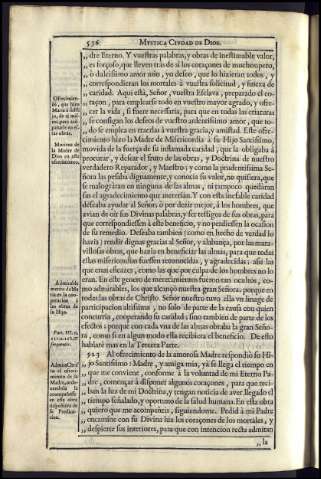 536 MYSTICA CIUDAD DE DIOS.
„ dre Eterno. Y vuestras palabras, y obras de inestimable valor,
„ es forçoso, que lleven tras de sì los coraçones de muchos; pero,
„ ò dulcissimo amor mio, yo deseo, que lo hizieran todos, y
„ correspondieran los mortales à vuestra solicitud, y fineza de
„ caridad. Aqui està, Señor, vuestra Esclava, preparado el co-
„ raçon, para emplearse todo en vuestro mayor agrado, y ofre-
„ cer la vida, si fuere necessaria, para que en todas las criaturas
„ se consigan los deseos de vuestro ardentissimo amor, que to-
„ do se emplea en traerlas à vuestra gracia, y amistad. Este ofre-
cimiento hizo la Madre de Misericordia à su Hijo Santissimo,
movida de la fuerça de su inflamada caridad, que la obligaba à
procurar, y desear el fruto de las obras, y Doctrina de nuestro
verdadero Reparador, y Maestro: y como la prudentissima Se-
ñora las pesaba dignamente, y conocia su valor, no quisiera, que
se malograran en ninguna de las almas, ni tampoco quedàran
sin el agradecimiento que merecian. Y con esta inefable caridad
deseaba ayudar al Señor, ò por dezir mejor, à los hombres, que
avian de oìr sus Divinas palabras, y ser testigos de sus obras, para
que correspondiessen à este beneficio, y no perdiessen la ocasion
de su remedio. Deseaba tambien (como en hecho de verdad lo
hazia) rendir dignas gracias al Señor, y alabança, por las mara-
villosas obras, que hazia en beneficio de las almas, para que todas
estas misericordias fuessen reconocidas, y agradecidas; assi las
que eran eficazes, como las que por culpa de los hombres no lo
eran. En este genero de merecimientos fueron tan ocultos, co-
mo admirables, los que alcançò nuestra gran Señora; porque en
todas las obras de Christo Señor nuestro tuvo ella un linage de
participacion altissima, no solo de parte de la causa con quien
concurria, cooperando su caridad; sino tambien de parte de los
efectos: porque con cada una de las almas obraba la gran Seño-
ra, como si en algun modo ella recibiera el beneficio. De esto
hablarè mas en la Tercera Parte.
923 Al ofrecimiento de la amorosa Madre respondiò su Hi-
„ jo Santissimo: Madre, y amiga mia, yà se llega el tiempo en
„ que me conviene, conforme à la voluntad de mi Eterno Pa-
„ dre, començar à disponer algunos coraçones, para que reci-
„ ban la luz de mi Doctrina, y tengan noticia de aver llegado el
„ tiempo señalado, y oportuno de la salud humana. En esta obra
„ quiero que me acompañeis, siguiendome. Pedid à mi Padre
„ encamine con su Divina luz los coraçones de los mortales, y
„ despierte sus interiores, para que con intencion recta admitan
„ la
Ofrecimien-
to, que hizo
Maria à su Hi-
jo,
Motivos de
la Madre de
Dios en este
ofrecimiento.
Admirable